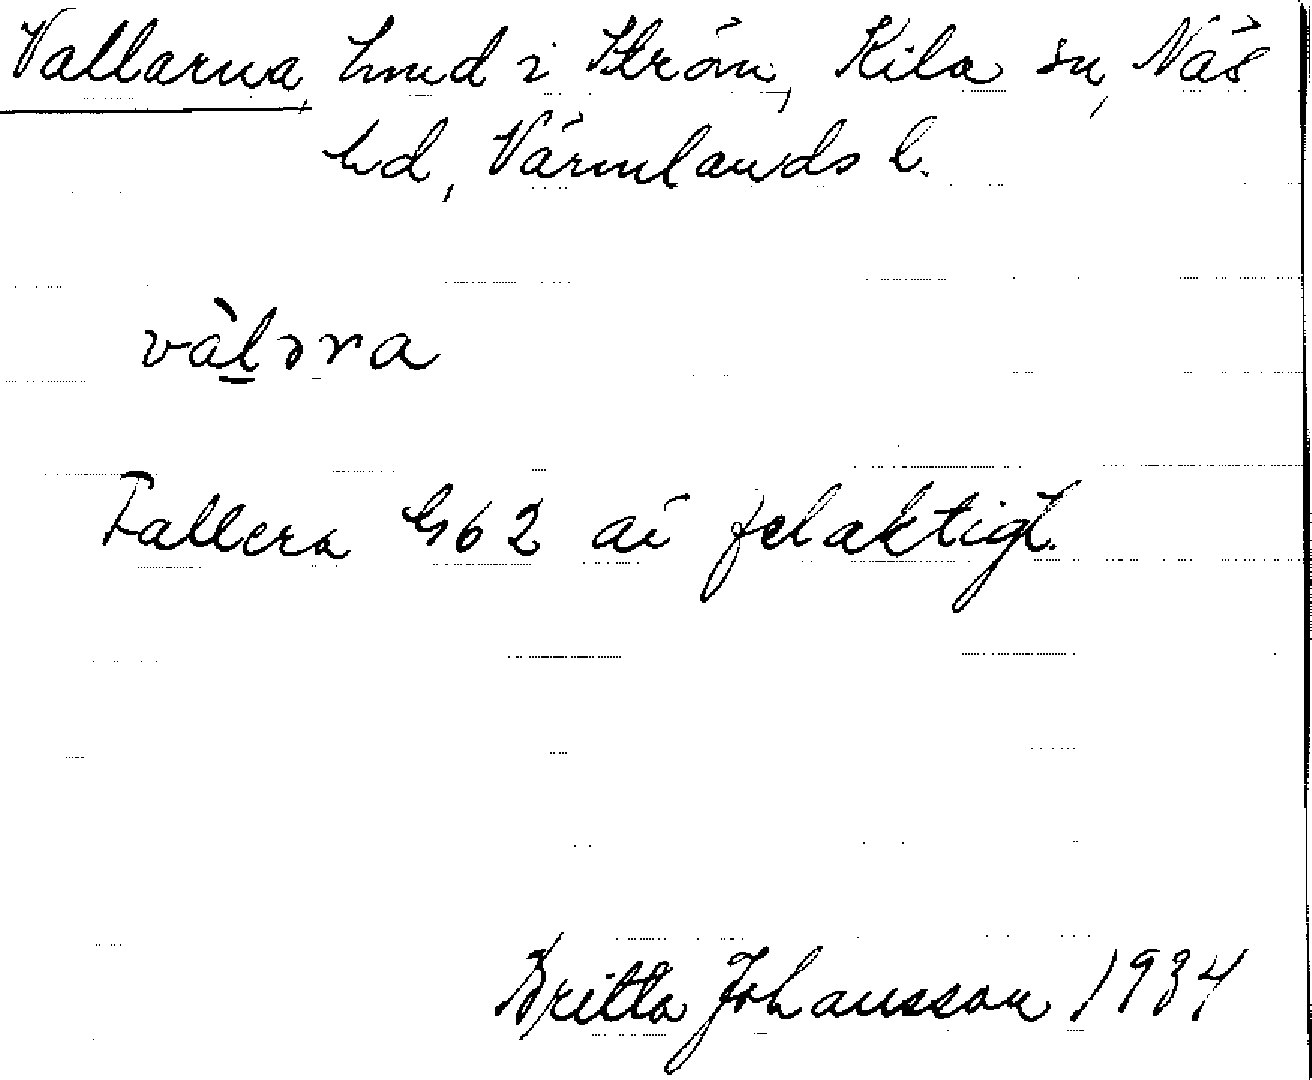 Vallarna, hmd i Strön, Kila sn, Näs
hd, Värmlands l.
vàl̠ǝra
Fallera G62 är felaktigt.
Britta Johansson 1934